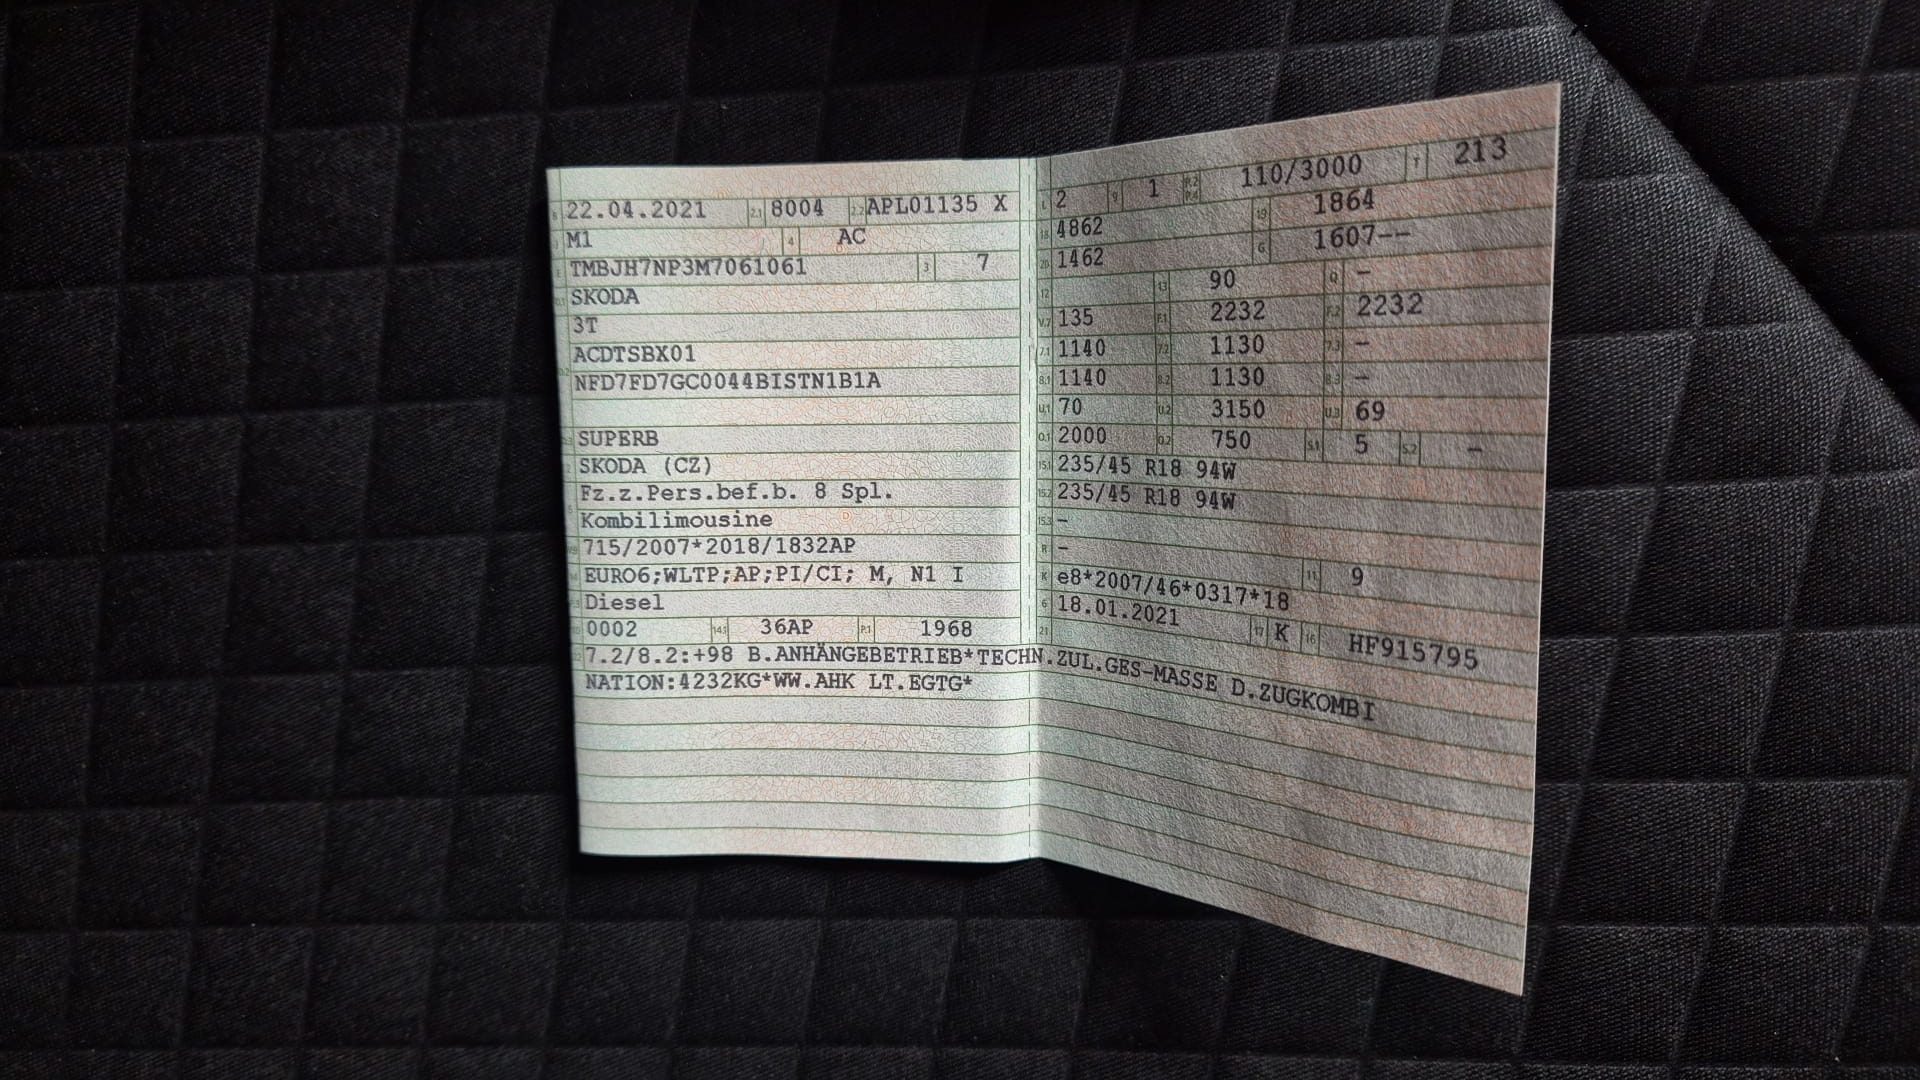 22.04.2021 2.1 8004 2.2 APL01135 X
M1 4 AC
TMBJH7NP3M7061061 3 7
SKODA
3T
ACDTSBX01
NFD7FD7GC0044BISTN1B1A
SUPERB
SKODA (CZ)
Fz.z.Pers.bef.b. 8 Spl.
Kombilimousine
715/2007*2018/1832AP
EURO6;WLTP;AP;PI/CI; M, N1 I
Diesel
0002 14.1 36AP P.1 1968
L 2 9 1 P.2 P.4 110/3000 T 213
18 4862 19 1864
20 1462 G 1607--
12 13 90 Q -
V.7 135 F.1 2232 F.2 2232
7.1 1140 7.2 1130 7.3 -
8.1 1140 8.2 1130 8.3 -
U.1 70 U.2 3150 U.3 69
O.1 2000 O.2 750 S.1 5 S.2 -
15.1 235/45 R18 94W
15.2 235/45 R18 94W
15.3 -
R - 11 9
K e8*2007/46*0317*18
6 18.01.2021 17 K 16 HF915795
21
7.2/8.2:+98 B.ANHÄNGEBETRIEB*TECHN.ZUL.GES-MASSE D.ZUGKOMBI
NATION:4232KG*WW.AHK LT.EGTG*